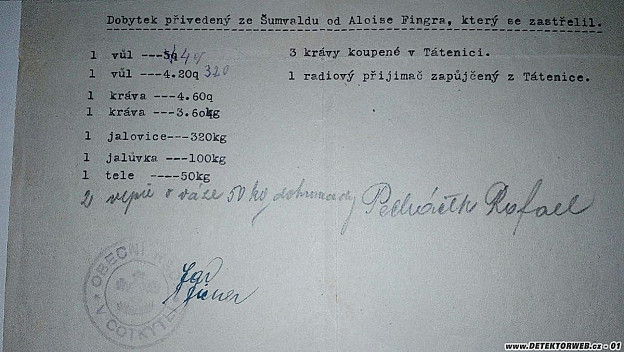 Dobytek přivedený ze Šumvaldu od Aloise Fingra, který se zastřelil.
1 vůl --- 4q
1 vůl ---4.20q 320
1 kráva ---4.60q
1 kráva ---3.60kg
1 jalovice---320kg
1 jalůvka ---100kg
1 tele ----50kg
3 krávy koupené v Tátenici.
1 radiový přijimač zapůjčený z Tátenice.
2 vepře o váze 50 kg dohromady Pecháček Rafael
OBECNÍ
V COTKYTLI
www.DETEKTORWEB.cz - 01